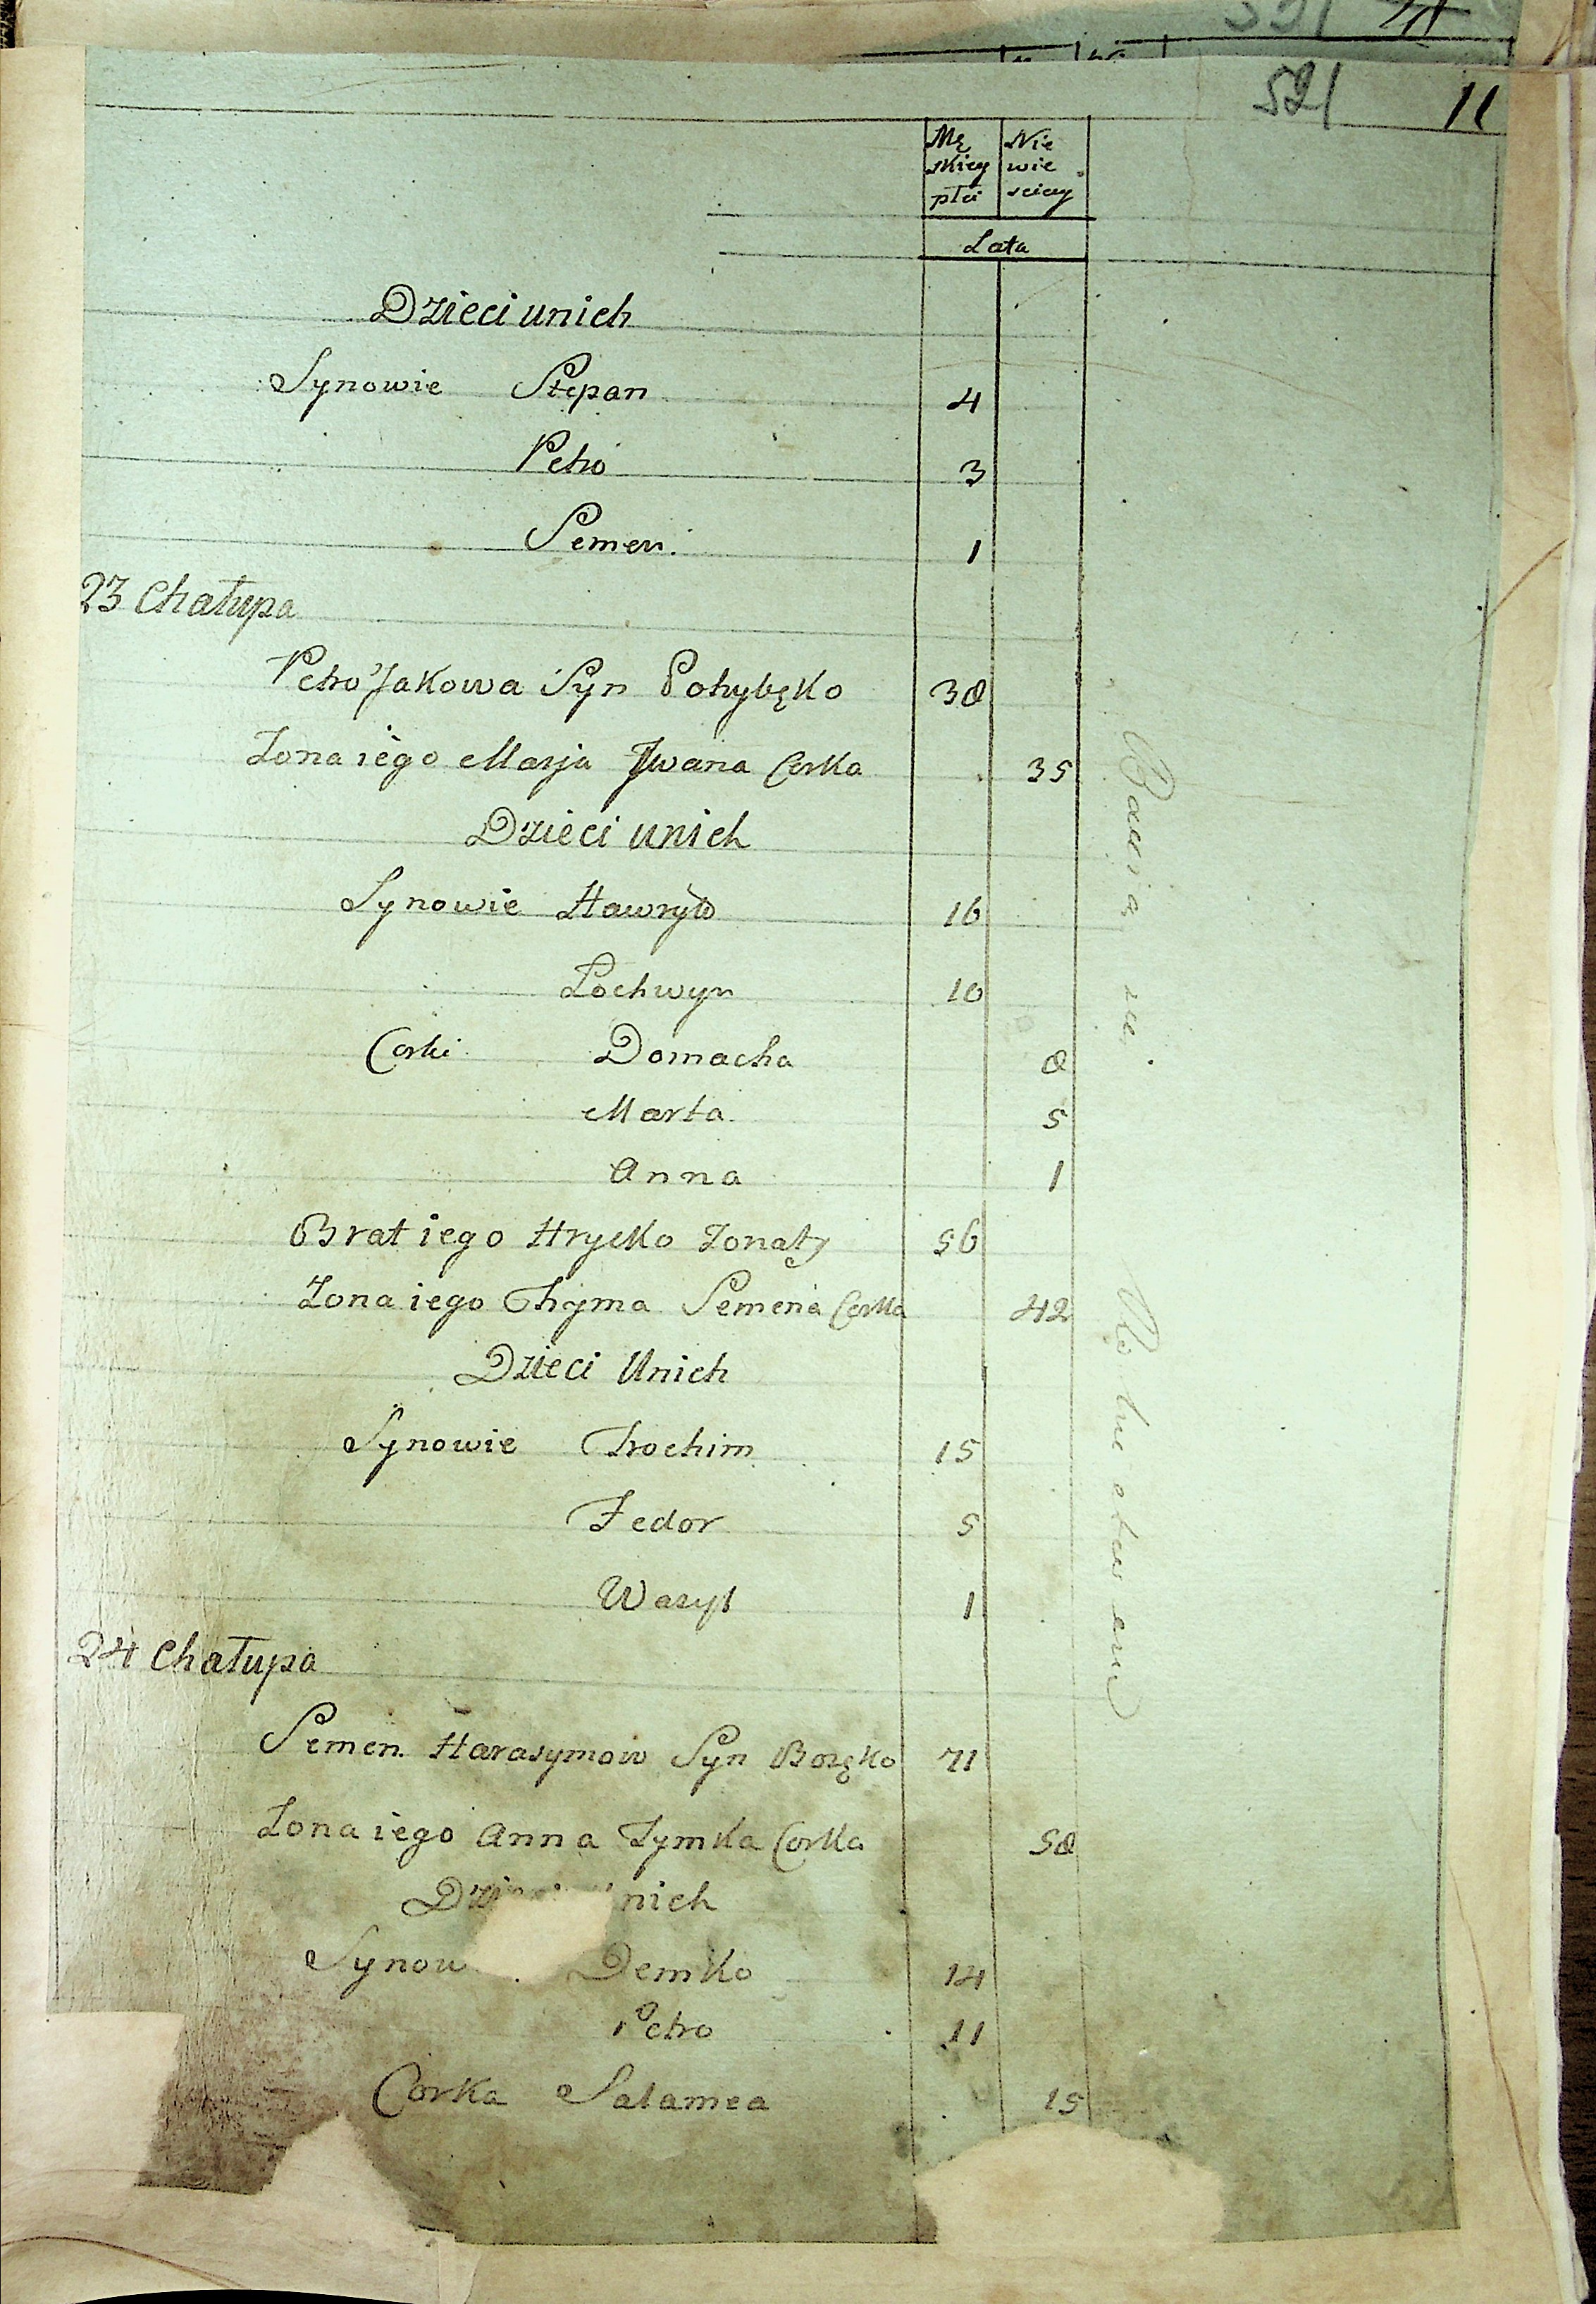 521 11
Mę Nie
skiey wie
płci sciey
Lata
Dzieci unich
Synowie Stepan 4
Petro 3
Semen. 1
23 Chałupa
Petro Jakowa Syn Pohybęko 38
Zona iego Marja Jwana Corka 35
Dzieci unich
Synowie Hawryło 16
Lochwyn 10
Corki Domacha 8
Marta 5
Anna 1
Brat iego Hrycko Zonaty 56
Zona iego Chyma Semena Corka 42
Dzieci Unich
Synowie Trochim 15
Fedor 5
Wasyl 1
24 Chałupa
Semen Harasymow Syn Bozęko 71
Zona iego Anna Tymka Corka 58
nich
Synow Demko 14
Petro 11
Corka Salamea 15